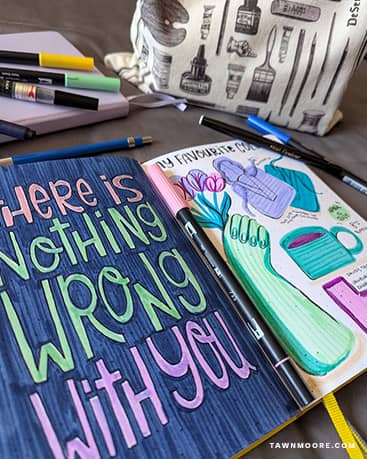 DeSer
MY FAVOURITE
THERE IS
NOTHING
WRONG
WITH YOU
TAWNMOORE.COM